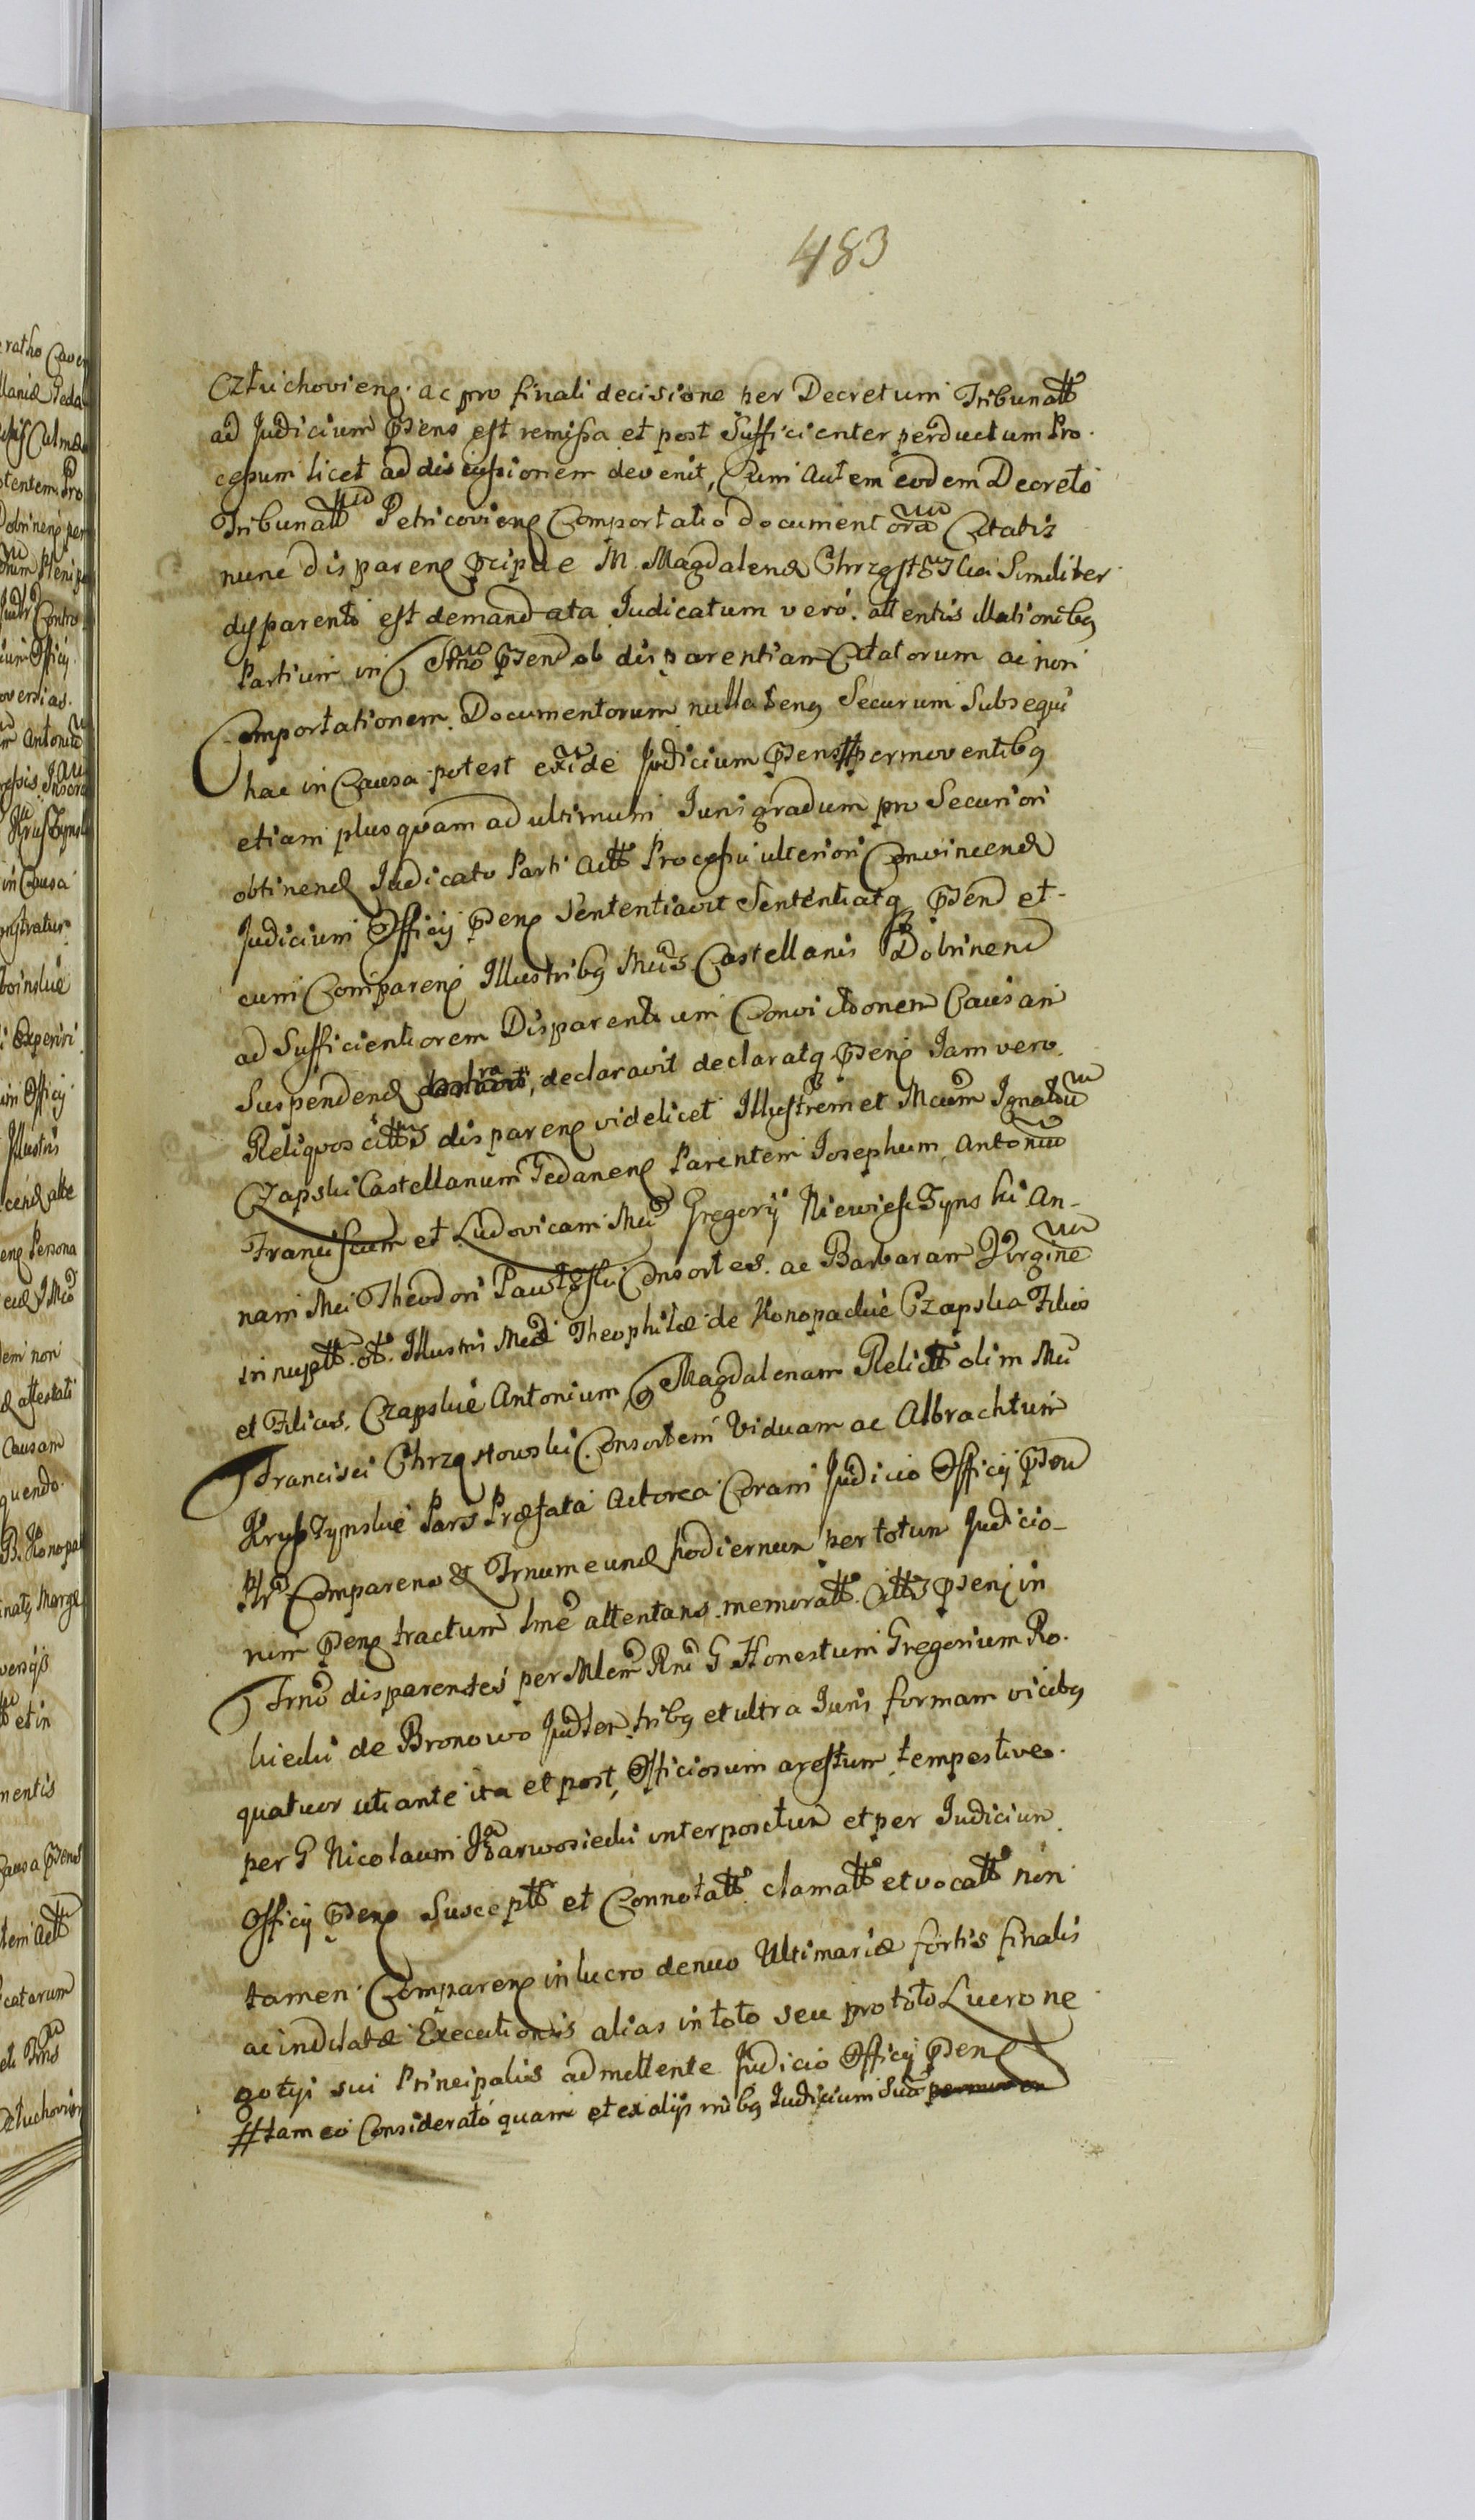 483
Cztuchovien. ac pro finali decisione per Decretum Tribunatt
ad Judicium Psens est remissa et post Sufficienter perductum Pro-
cessum licet ad discussionem devenit, Cum autem eodem Decreto
Tribunatt Petricovien Comportatio documentorum Citatis
nunc disparen pcipue M. Magdalenæ Similiter
disparenti est demandata Judicatum vero. attentis illationibq
Partium in Trno Psend ob disparentiam Citatorum ac non
Comportationem Documentorum nullatenq Securum Subsequi
hac in Causa potest exinde Judicium Psens # permoventibq
etiam plusquam ad ultimum Juris gradum pro Securiori
obtinend Judicato Parti Actt Processu ulteriori Convincend
Judicium Officij Psen Sententiavit Sententiatq Psend et
cum Comparen Illustribq Mcis Castellanis Dobrinend
ad Sufficientiorem Disparentium Convictionem Causam
Suspendend declaravit declaratq Psen Jam vero
Reliquos cittos disparen videlicet Illustrem et Mcum Ignatiu
Czapski Castellanum Gedanen Parentem Josephum Antoniu
Franciscum et Ludovicam Mci Gregorij Niewiescynski An-
nam Mci Theodori Consortes. ac Barbaram Virgine
in nuptt. ot. Illustri Mcæ Theophilæ de Konopackie Czapska Filios
et Filias. Czapskie Antonium Magdalenam Relictt olim Mci
Francisci Chrząstowski Consortem Viduam ac Albrachtum
Pars Præfata Actorea Coram Judicio Officij Psen
Ptr Comparens & Trnum eund hodiernum per totum Judicio-
rum Psen tractum tme attentans memoratt. Cittos Psen in
Trno disparentes per Mlem Rnd G Honestum Gregorium Ro-
kicki de Bronowo Judter tribq et ultra Juris formam vicibq
quatuor uti ante ita et post, Officiosum arestum tempestive
per G Nicolaum Karwosiecki interpositum et per Judicium
Officij Psen Susceptt et Connotatt clamatt et vocatt non
tamen Comparen in lucro denuo Ultimariæ fortis finalis
ac indilatæ Executionis alias in toto seu pro toto Lucro ne
gotyi sui Principalis admittente Judicio Officij Psen
# tam eo Considerato quam et ex alijs mibq Judicium Suu